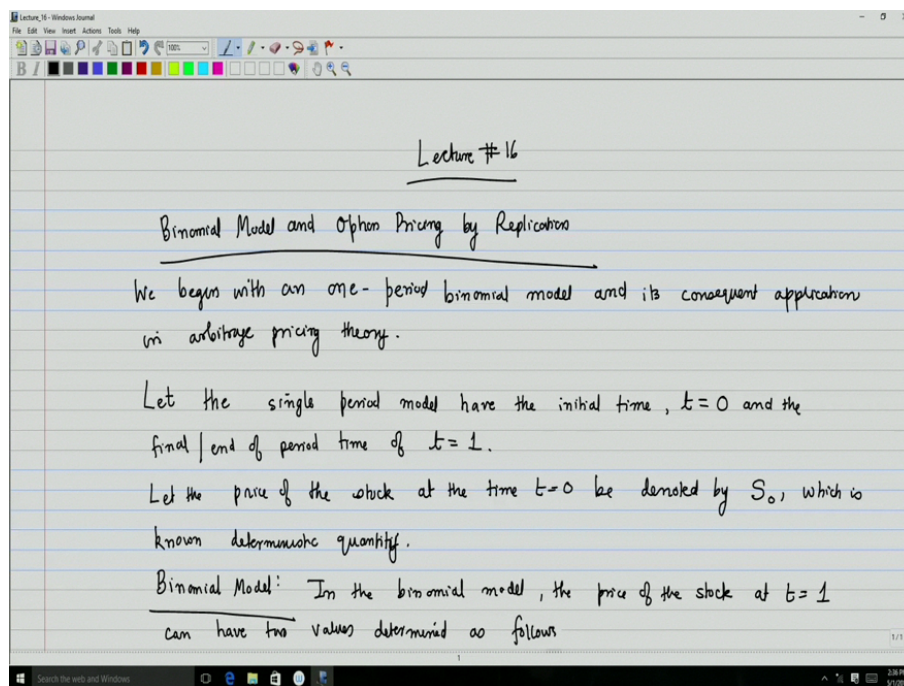 Lecture_16 - Windows Journal
File Edit View Insert Actions Tools Help
100%
B I
Lecture # 16
Binomial Model and Option Pricing by Replication
We begin with an one-period binomial model and its consequent application
in arbitrage pricing theory.
Let the single period model have the initial time, t = 0 and the
final / end of period time of t = 1.
Let the price of the stock at the time t = 0 be denoted by S₀, which is
known deterministic quantity.
Binomial Model: In the binomial model, the price of the stock at t = 1
can have two values determined as follows
1/1
1
Search the web and Windows
2:36 PM